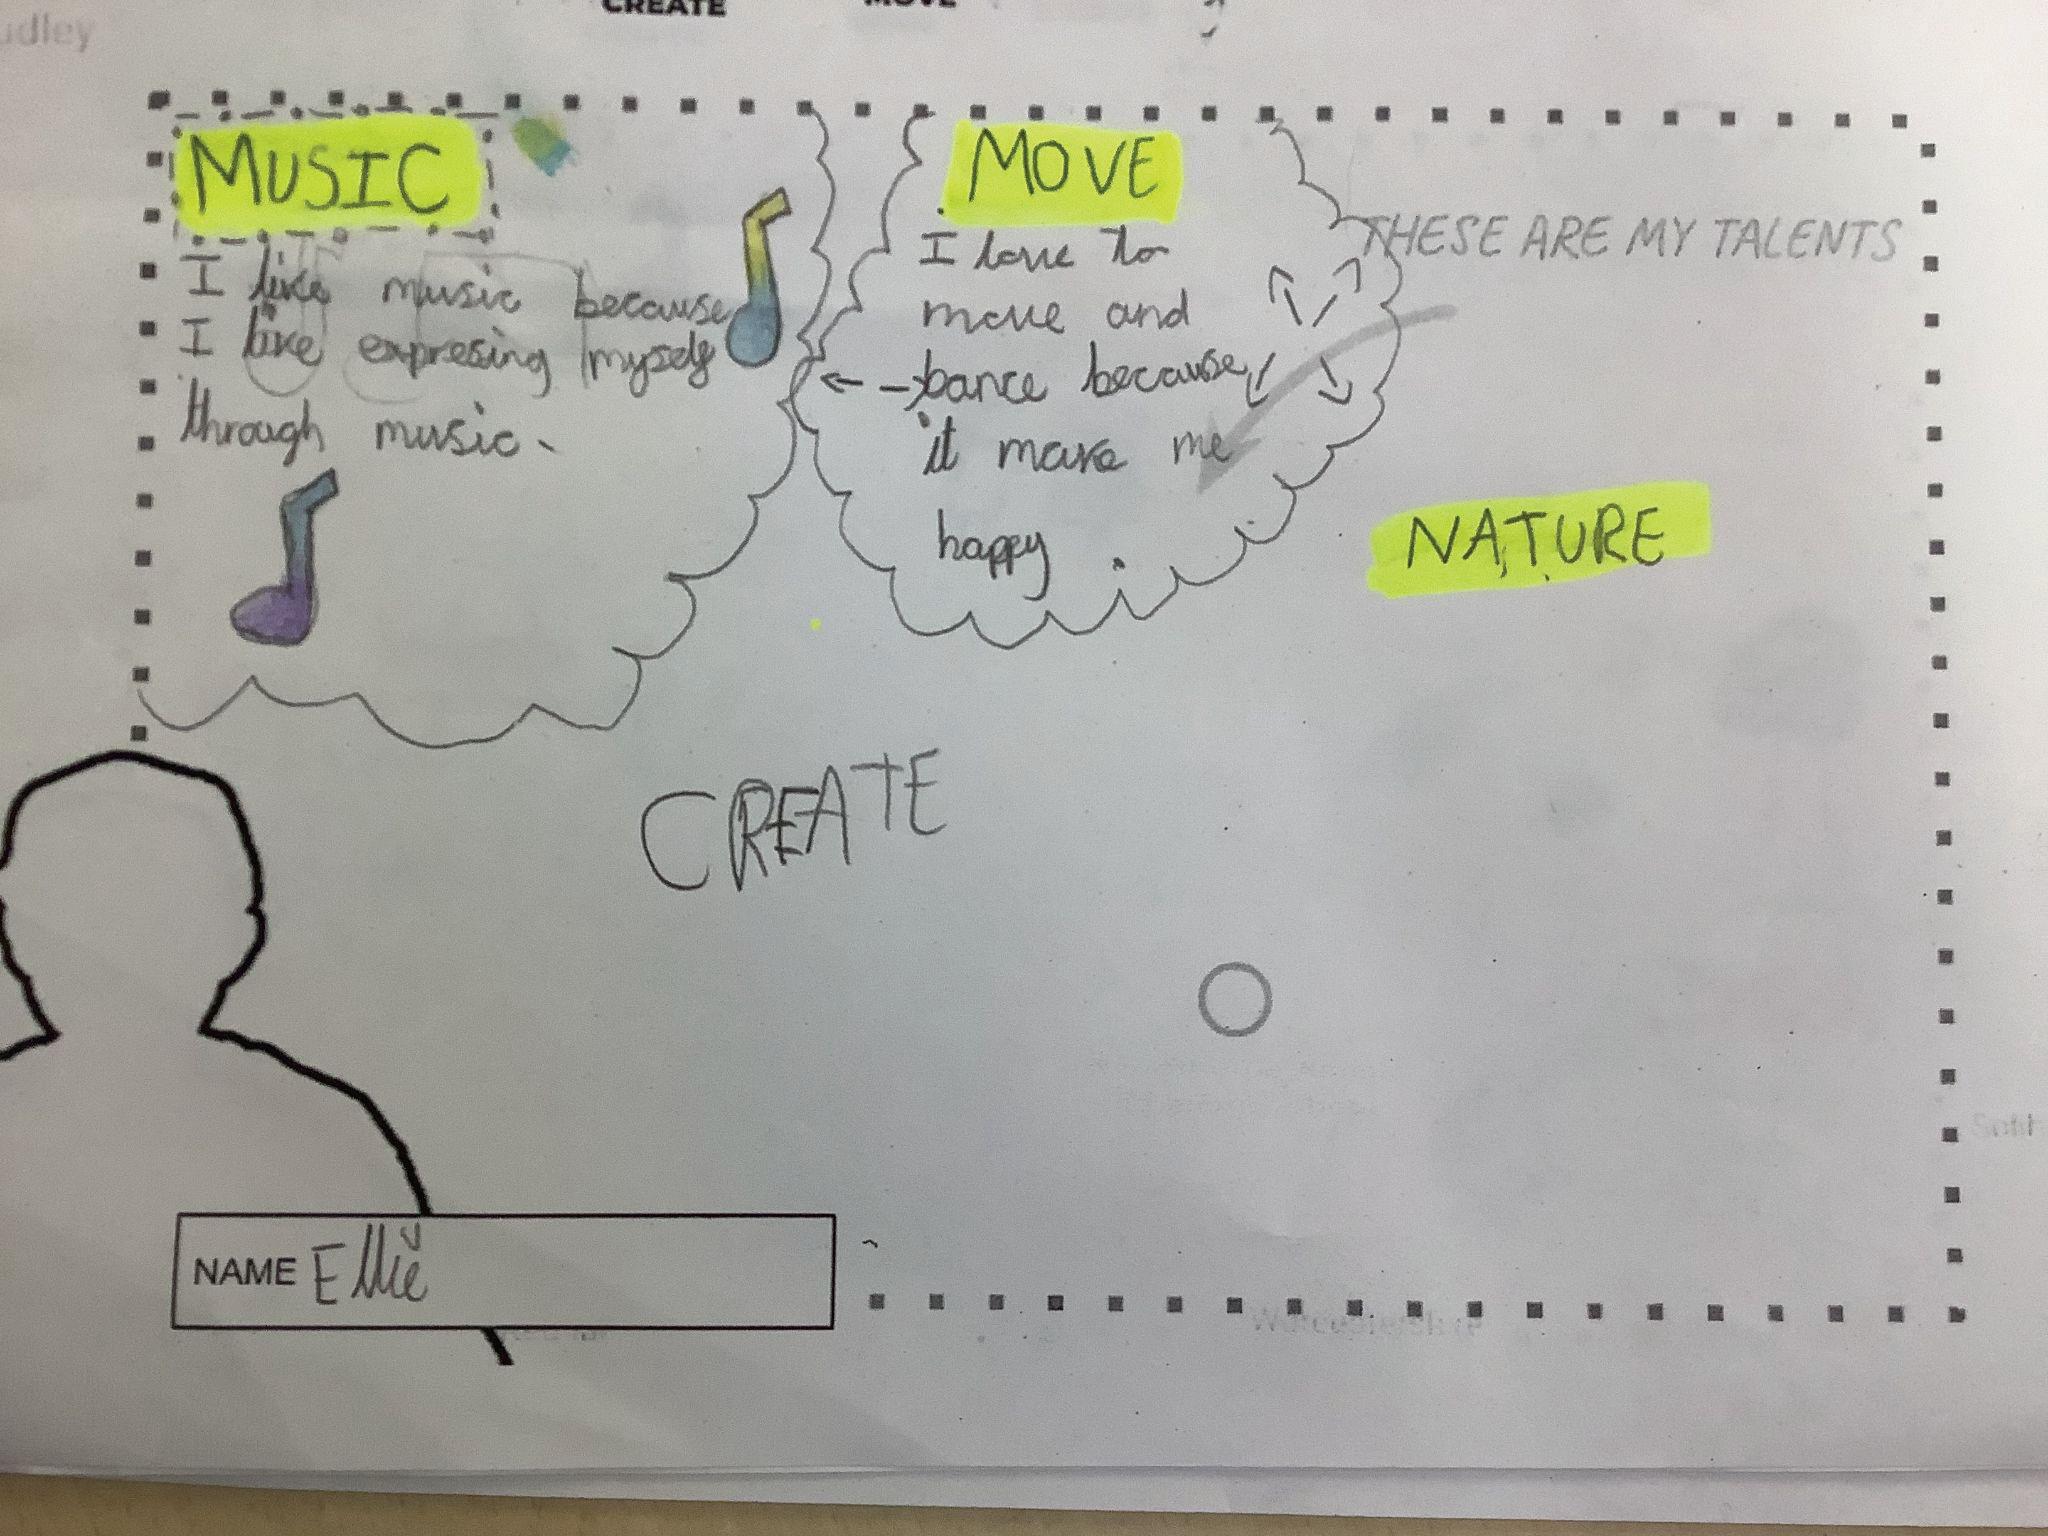 CREATE MOVE
MUSIC
I like music because
I like expresing myself
through music.
MOVE
I love to
move and
Dance because
it make me
happy.
THESE ARE MY TALENTS
NATURE
CREATE
NAME Ellie